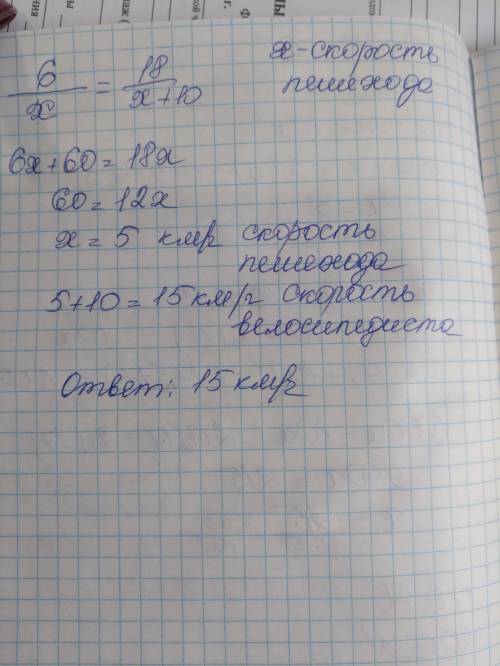 6/x = 18/(x+10) x - скорость пешехода
6x+60 = 18x
60 = 12x
x = 5 км/г скорость
пешехода
5+10 = 15 км/г скорость
велосипедиста
Ответ: 15 км/г